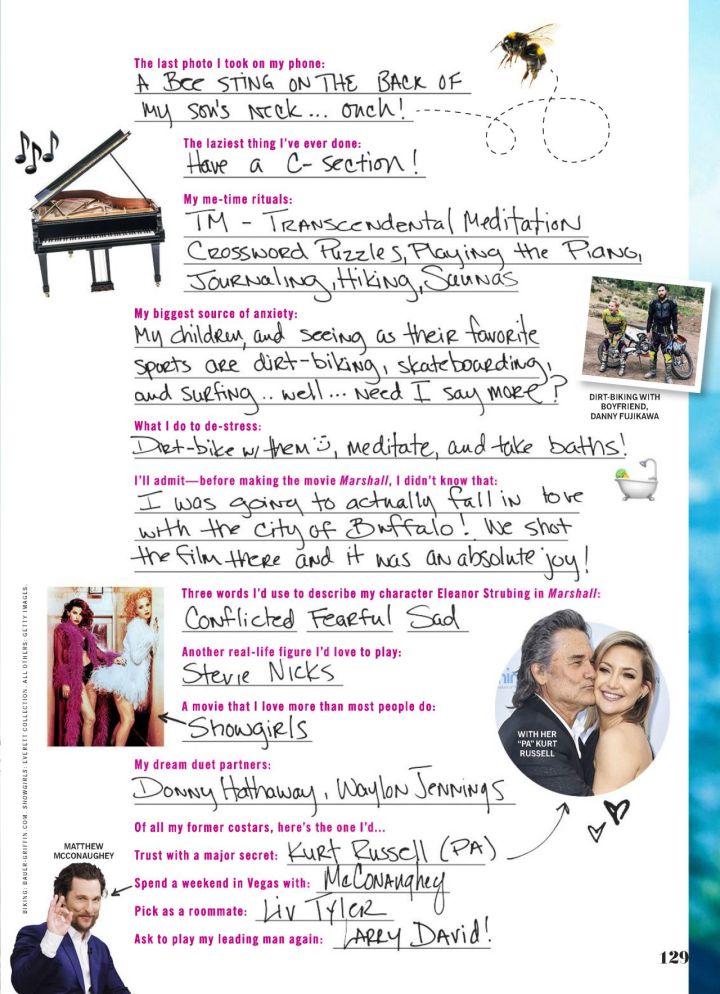 The last photo I took on my phone:
A BEE STING ON THE BACK OF
MY SON'S NECK... OUCH!
The laziest thing I've ever done:
Have a C-section!
My me-time rituals:
TM - TRANSCENDENTAL MEDITATION
CROSSWORD PUZZLES, PLAYING THE PIANO,
JOURNALING, HIKING, SAUNAS
My biggest source of anxiety:
My children, and seeing as their favorite
sports are dirt-biking, skateboarding,
and surfing.. well... need I say more?
DIRT-BIKING WITH
BOYFRIEND,
DANNY FUJIKAWA
What I do to de-stress:
Dirt-bike w/ them, meditate, and take baths!
I'll admit—before making the movie Marshall, I didn't know that:
I was going to actually fall in love
with the city of Buffalo! We shot
the film there and it was an absolute joy!
Three words I'd use to describe my character Eleanor Strubing in Marshall:
Conflicted Fearful Sad
Another real-life figure I'd love to play:
Stevie Nicks
A movie that I love more than most people do:
Showgirls
WITH HER
"PA" KURT
RUSSELL
My dream duet partners:
Donny Hathaway, Waylon Jennings
Of all my former costars, here's the one I'd...
Trust with a major secret: Kurt Russell (PA)
MATTHEW
MCCONAUGHEY
Spend a weekend in Vegas with: McConaughey
Pick as a roommate: Liv Tyler
Ask to play my leading man again: LARRY DAVID!
BIKING: BAUER-GRIFFIN.COM. SHOWGIRLS: EVERETT COLLECTION. ALL OTHERS: GETTY IMAGES.
129